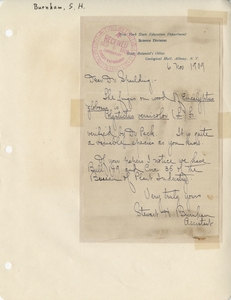 Burnham, S. H.
New York State Education Department
Science Division
State Botanist's Office
Geological Hall, Albany, N. Y.
6 Nov 1909
Dear Dr Spaulding,
The fungus on wood of Eucalyptus
globosus, is
verified by Dr Peck. It is quite
a variable species as you know.
If you haven't notice we have
Bull 149 and Circ 35 of the
Bureau of Plant Industry.
Very truly yours
Stewart H. Burnham
Assistant